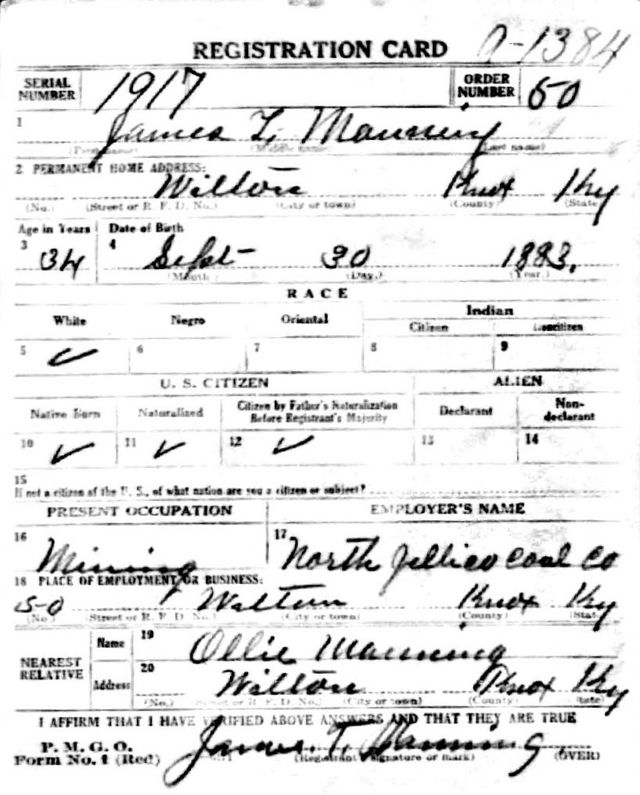 REGISTRATION CARD A-1384
SERIAL NUMBER 1917 ORDER NUMBER 60
1 James T. Manning
(First name) (Middle name) (Last name)
2 PERMANENT HOME ADDRESS:
Wilton Knox Ky
(No.) (Street or R. F. D. No.) (City or town) (County) (State)
Age in Years Date of Birth
3 34 4 Sept 30 1883.
(Month) (Day.) (Year.)
RACE
White Negro Oriental Indian
Citizen Noncitizen
5 ✓ 6 7 8 9
U. S. CITIZEN ALIEN
Native Born Naturalized Citizen by Father's Naturalization Before Registrant's Majority Declarant Non-declarant
10 ✓ 11 ✓ 12 ✓ 13 14
15
If not a citizen of the U. S., of what nation are you a citizen or subject?
PRESENT OCCUPATION EMPLOYER'S NAME
16 Mining 17 North Jellico Coal Co
18 PLACE OF EMPLOYMENT OR BUSINESS:
50 Wilton Knox Ky
(No.) (Street or R. F. D. No.) (City or town) (County) (State)
NEAREST RELATIVE Name 19 Ollie Manning
Address 20 Wilton Knox Ky
(No.) (Street or R. F. D. No.) (City or town) (County) (State)
I AFFIRM THAT I HAVE VERIFIED ABOVE ANSWERS AND THAT THEY ARE TRUE
P. M. G. O.
Form No. 1 (Red) James T. Manning
(Registrant's signature or mark) (OVER)